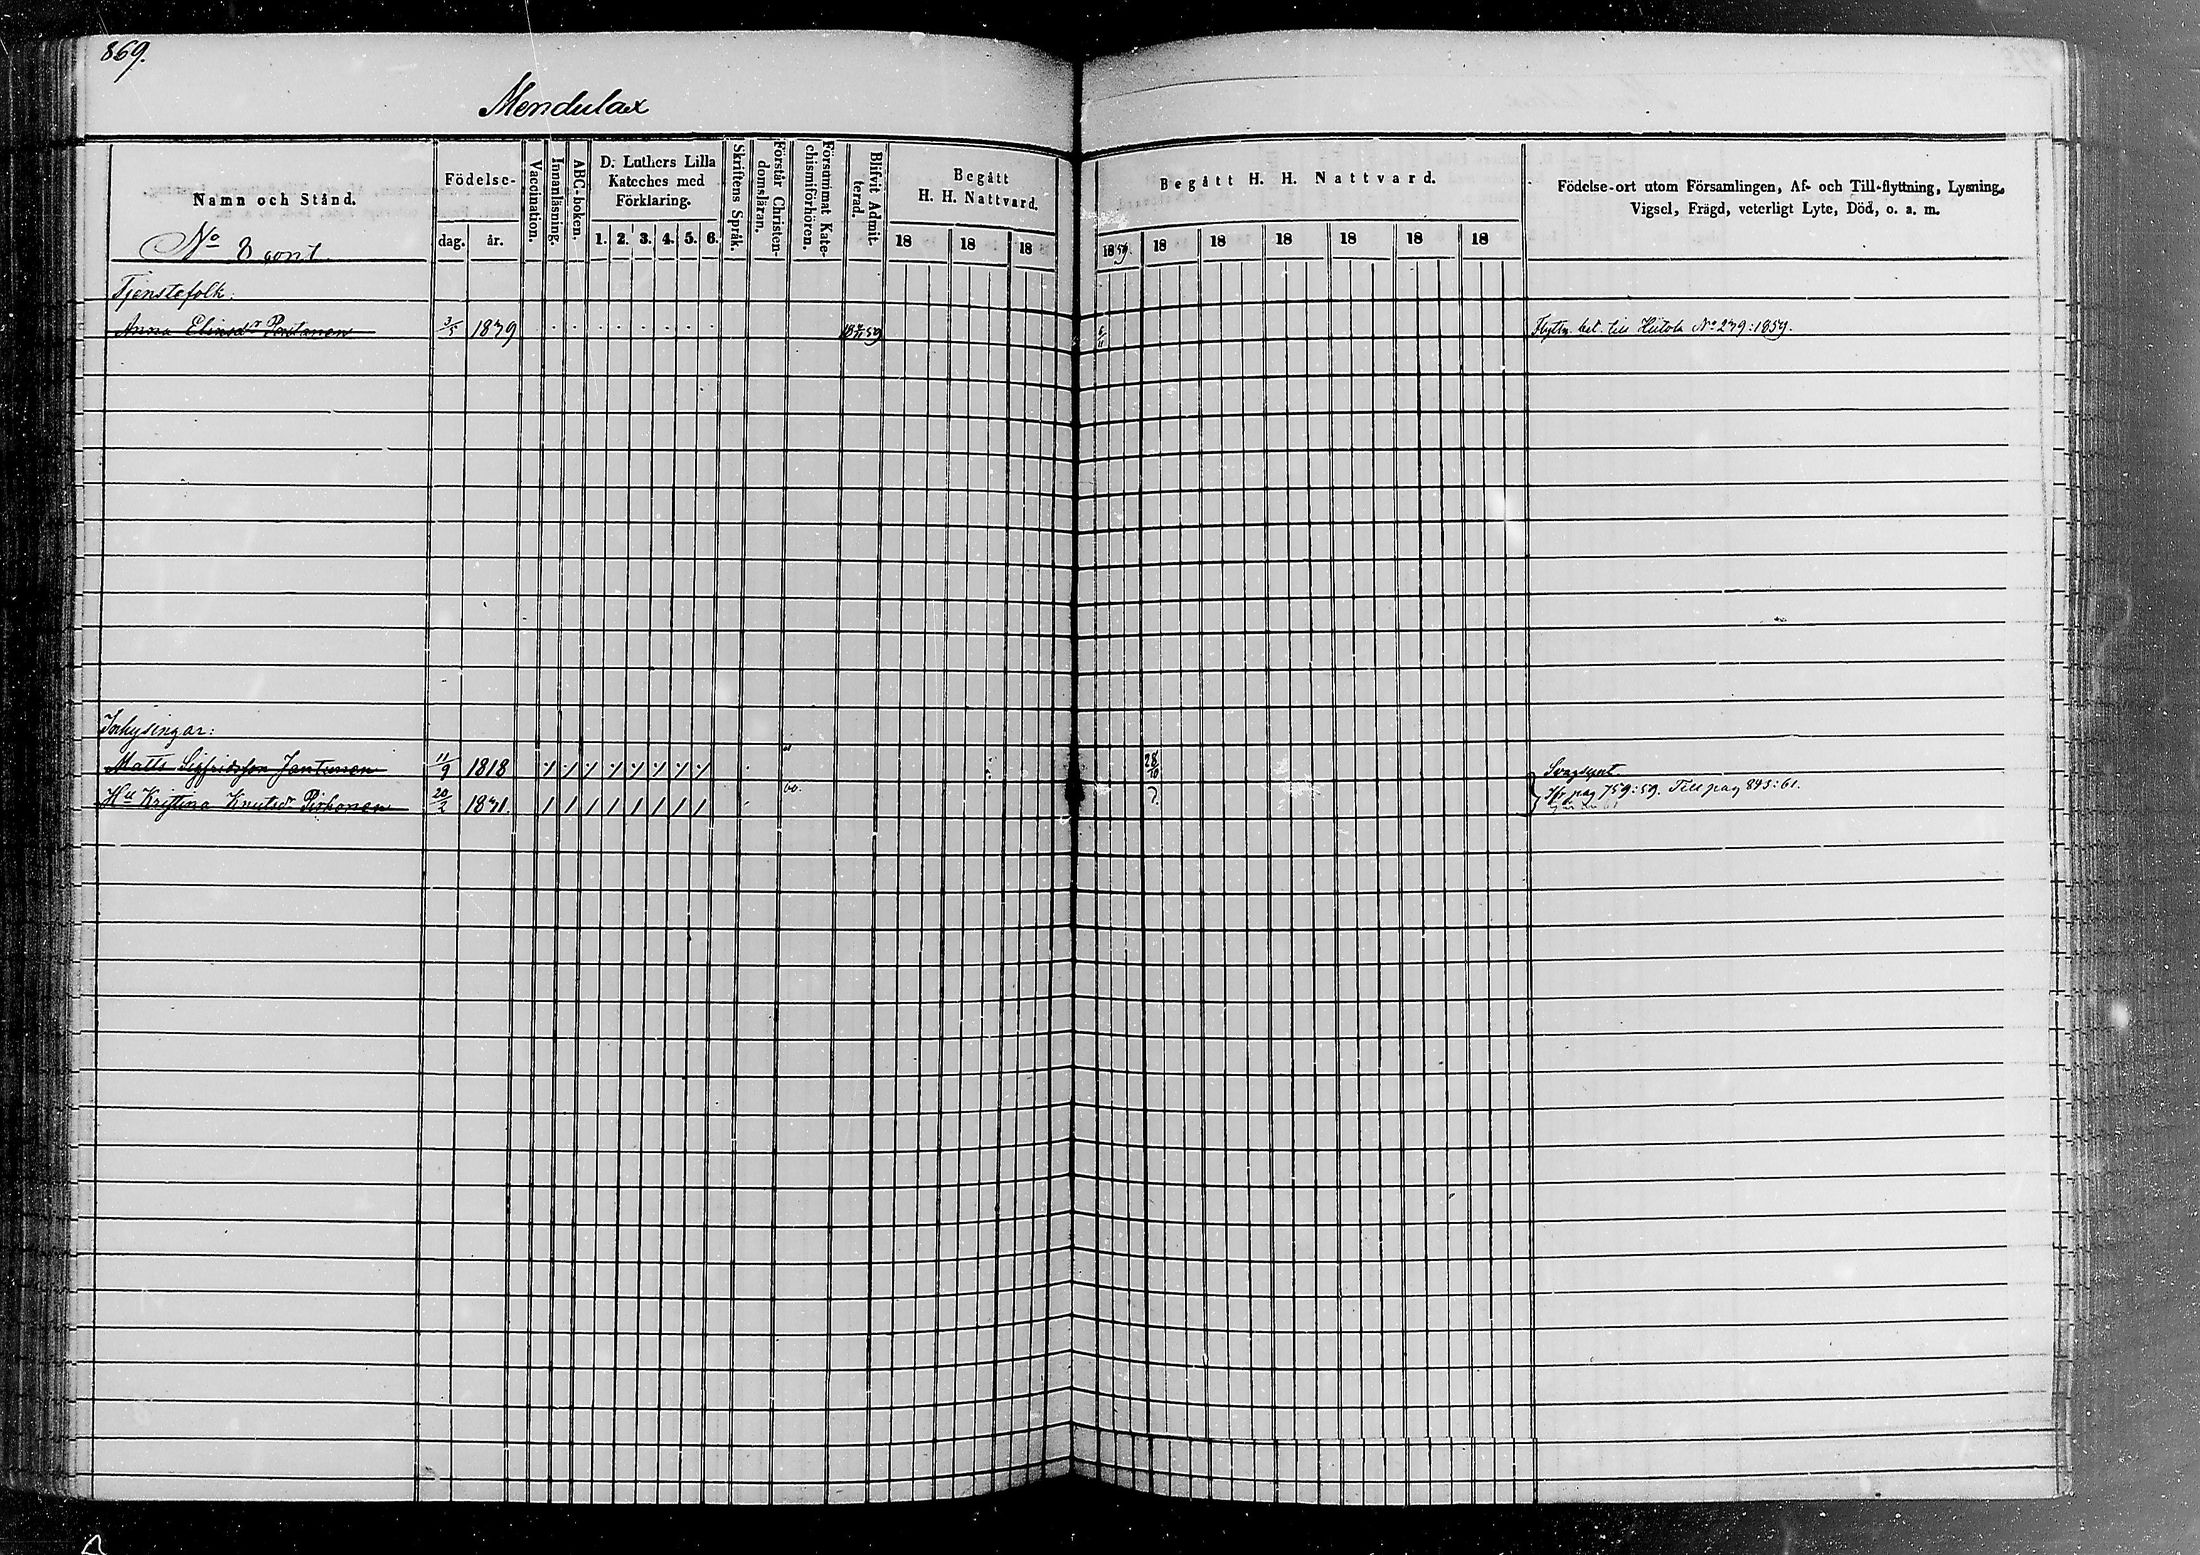 869.
Mendulax
Namn och Stånd.
Födelse-
dag.
år.
Vaccination.
Innanläsning.
ABC-boken.
D. Luthers Lilla
Kateches med
Förklaring.
1. 2. 3. 4. 5. 6.
Skriftens Språk.
Förstår Christen-
domsläran.
Försummat Kate-
chismiförhören.
Blifvit Admit-
terad.
Begått
H. H. Nattvard.
18 18 18
Begått H. H. Nattvard.
1859. 18 18 18 18 18 18
Födelse-ort utom Församlingen, Af- och Till-flyttning, Lysning,
Vigsel, Frägd, veterligt Lyte, Död, o. a. m.
No 8 cont.
Tjenstefolk:
Anna Eliasdr 3/5 1839 59 6/11 Flyttn. bet. till Hiitola No 239:1859.
Inhysingar:
Matts Sigfridsson Jantunen 11/9 1818 28/10 Svagsynt.
Hu Kristina Knutsdr Pirhonen 20/2 1831. 60. Ifr pag 759:59. Till pag 843:61.